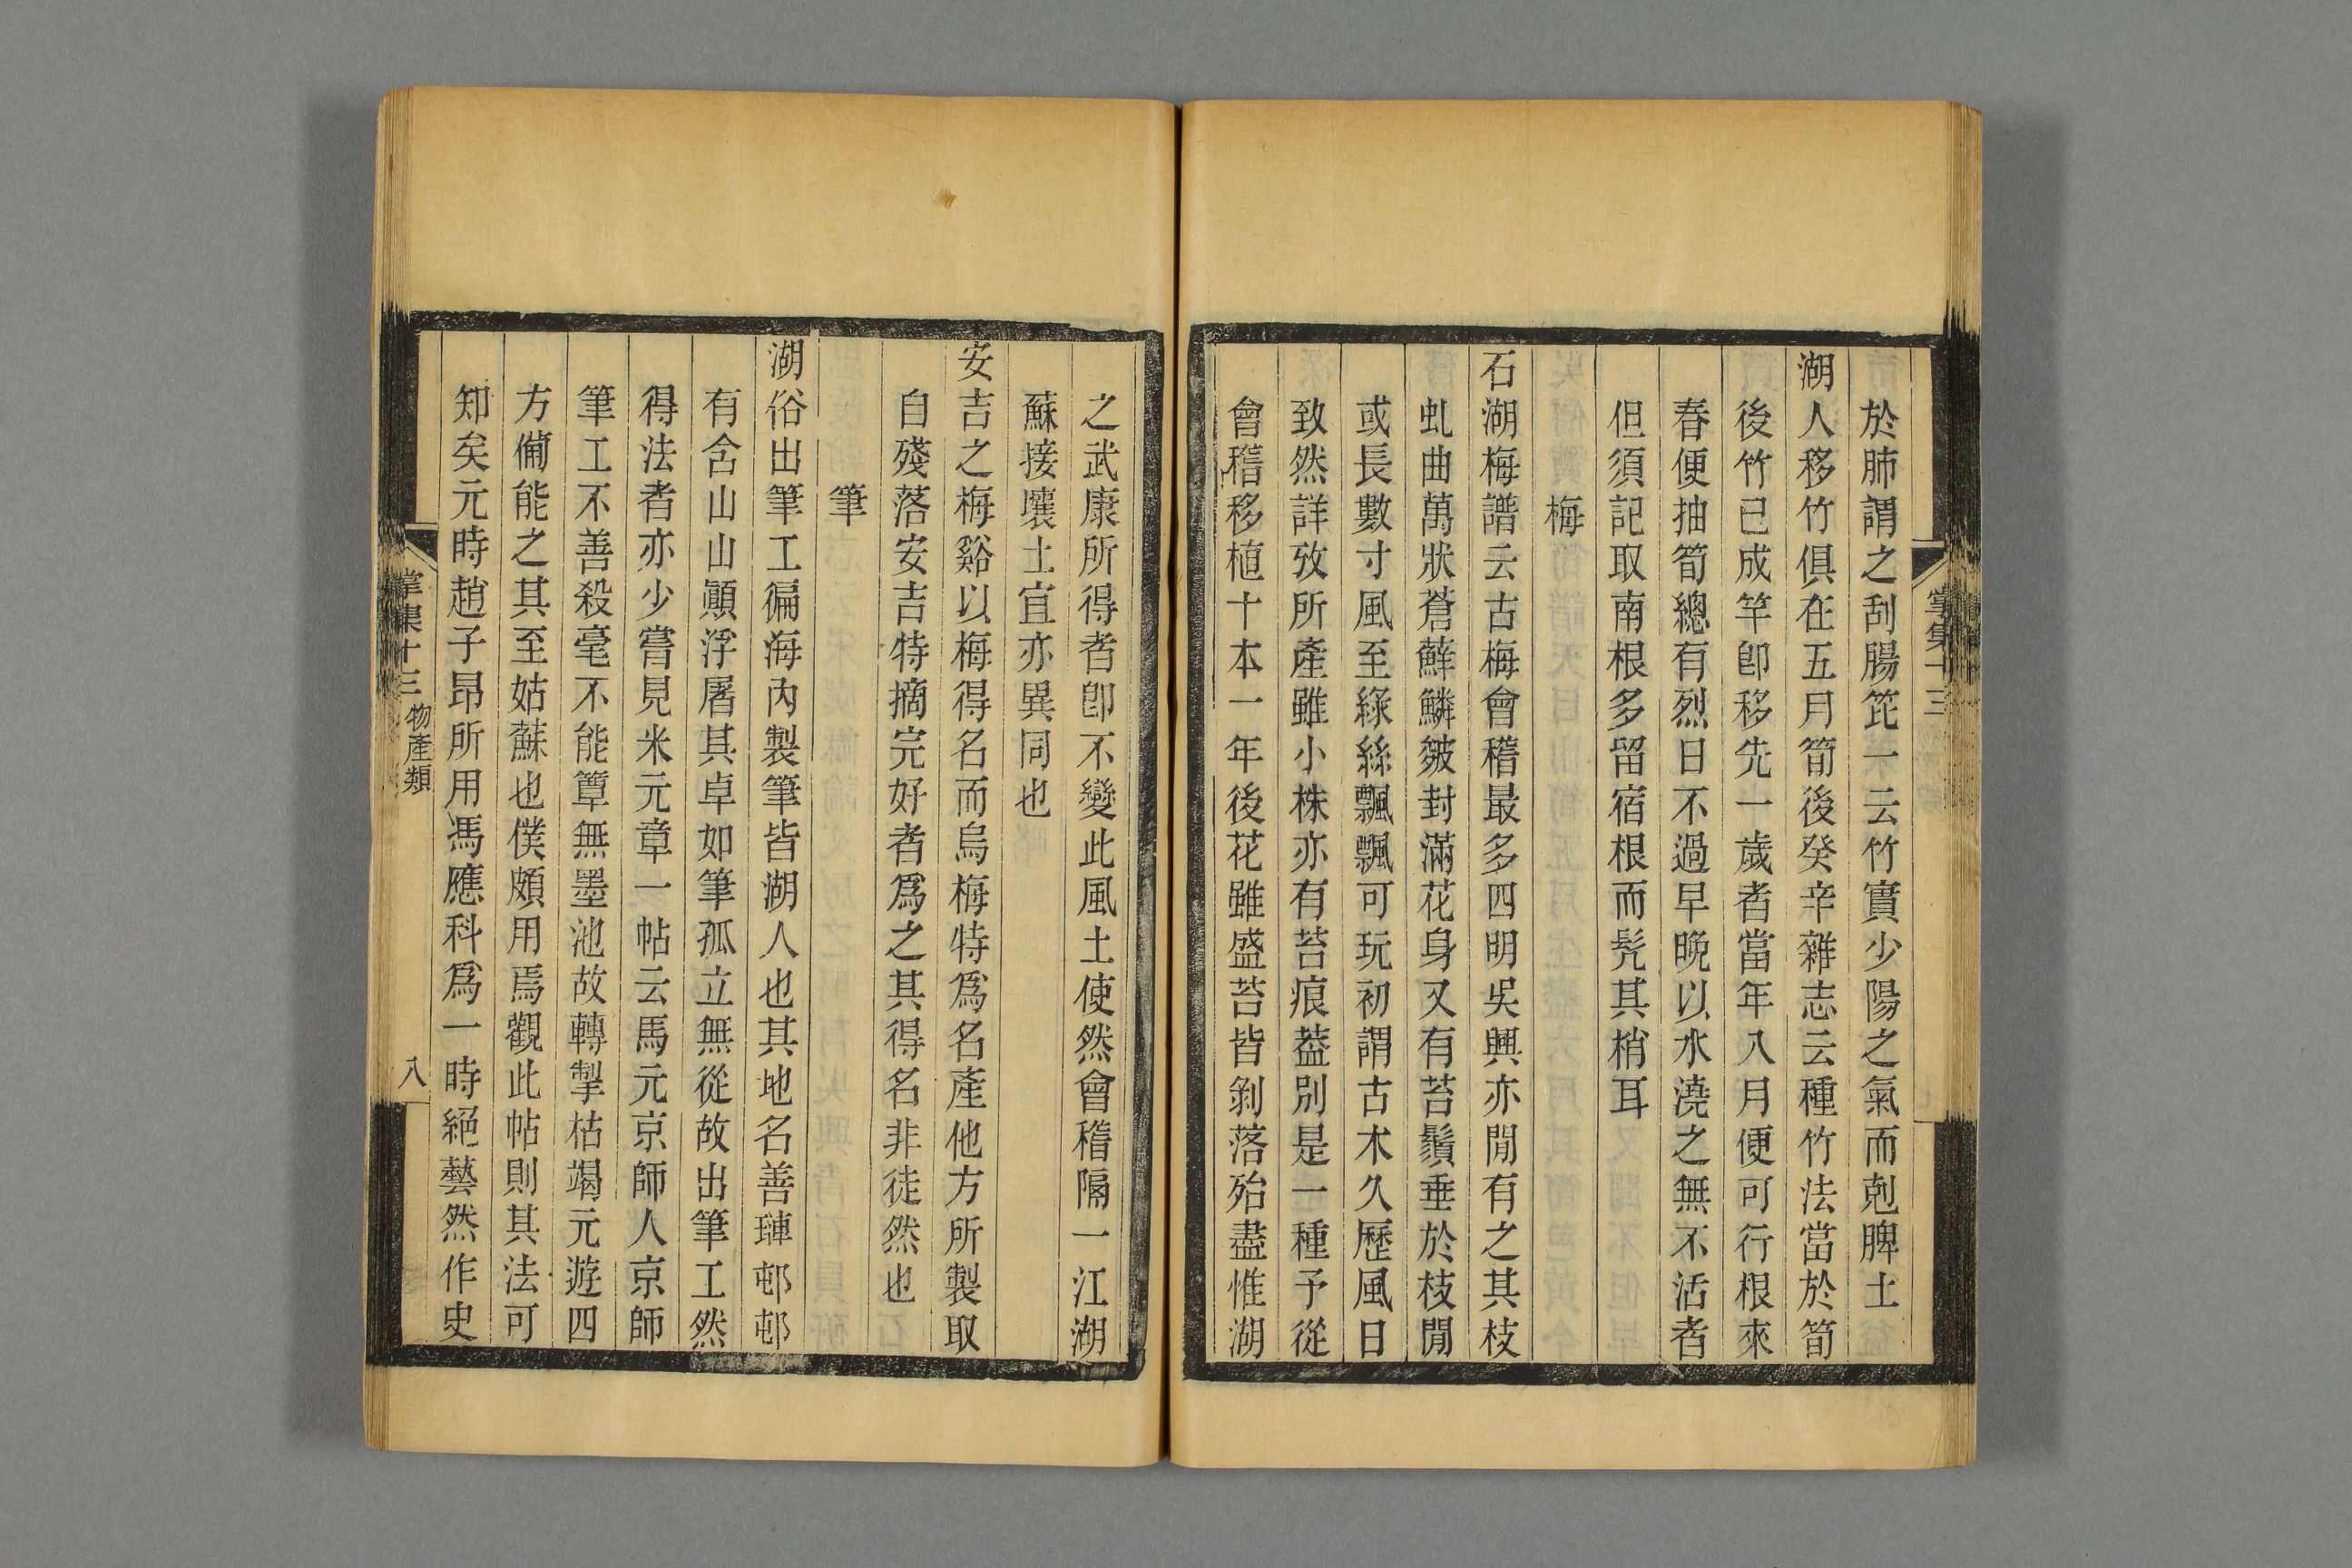 於肺謂之刮腸篦一云竹實少陽之氣而剋脾土
湖人移竹俱在五月筍後癸辛雜志云種竹法當於筍
後竹已成竿卽移先一歲者當年八月便可行根來
春便抽筍總有烈日不過早晚以水澆之無不活者
但須記取南根多留宿根而髡其梢耳
梅
石湖梅譜云古梅會稽最多四明吳興亦閒有之其枝
虬曲萬狀蒼蘚鱗皴封滿花身又有苔鬚垂於枝閒
或長數寸風至綠絲飄飄可玩初謂古木久歷風日
致然詳攷所產雖小株亦有苔痕葢別是一種予從
會稽移植十本一年後花雖盛苔皆剝落殆盡惟湖
掌集十三
之武康所得者卽不變此風土使然會稽隔一江湖
蘇接壤土宜亦異同也
安吉之梅谿以梅得名而烏梅特爲名產他方所製取
自殘落安吉特摘完好者爲之其得名非徒然也
筆
湖俗出筆工徧海內製筆皆湖人也其地名善璉邨邨
有含山山顚浮屠其卓如筆孤立無從故出筆工然
得法者亦少嘗見米元章一帖云馬元京師人京師
筆工不善殺毫不能簟無墨池故轉掣枯竭元遊四
方備能之其至姑蘇也僕頗用焉觀此帖則其法可
知矣元時趙子昂所用馮應科爲一時絕藝然作史
掌集十三 物產類 八